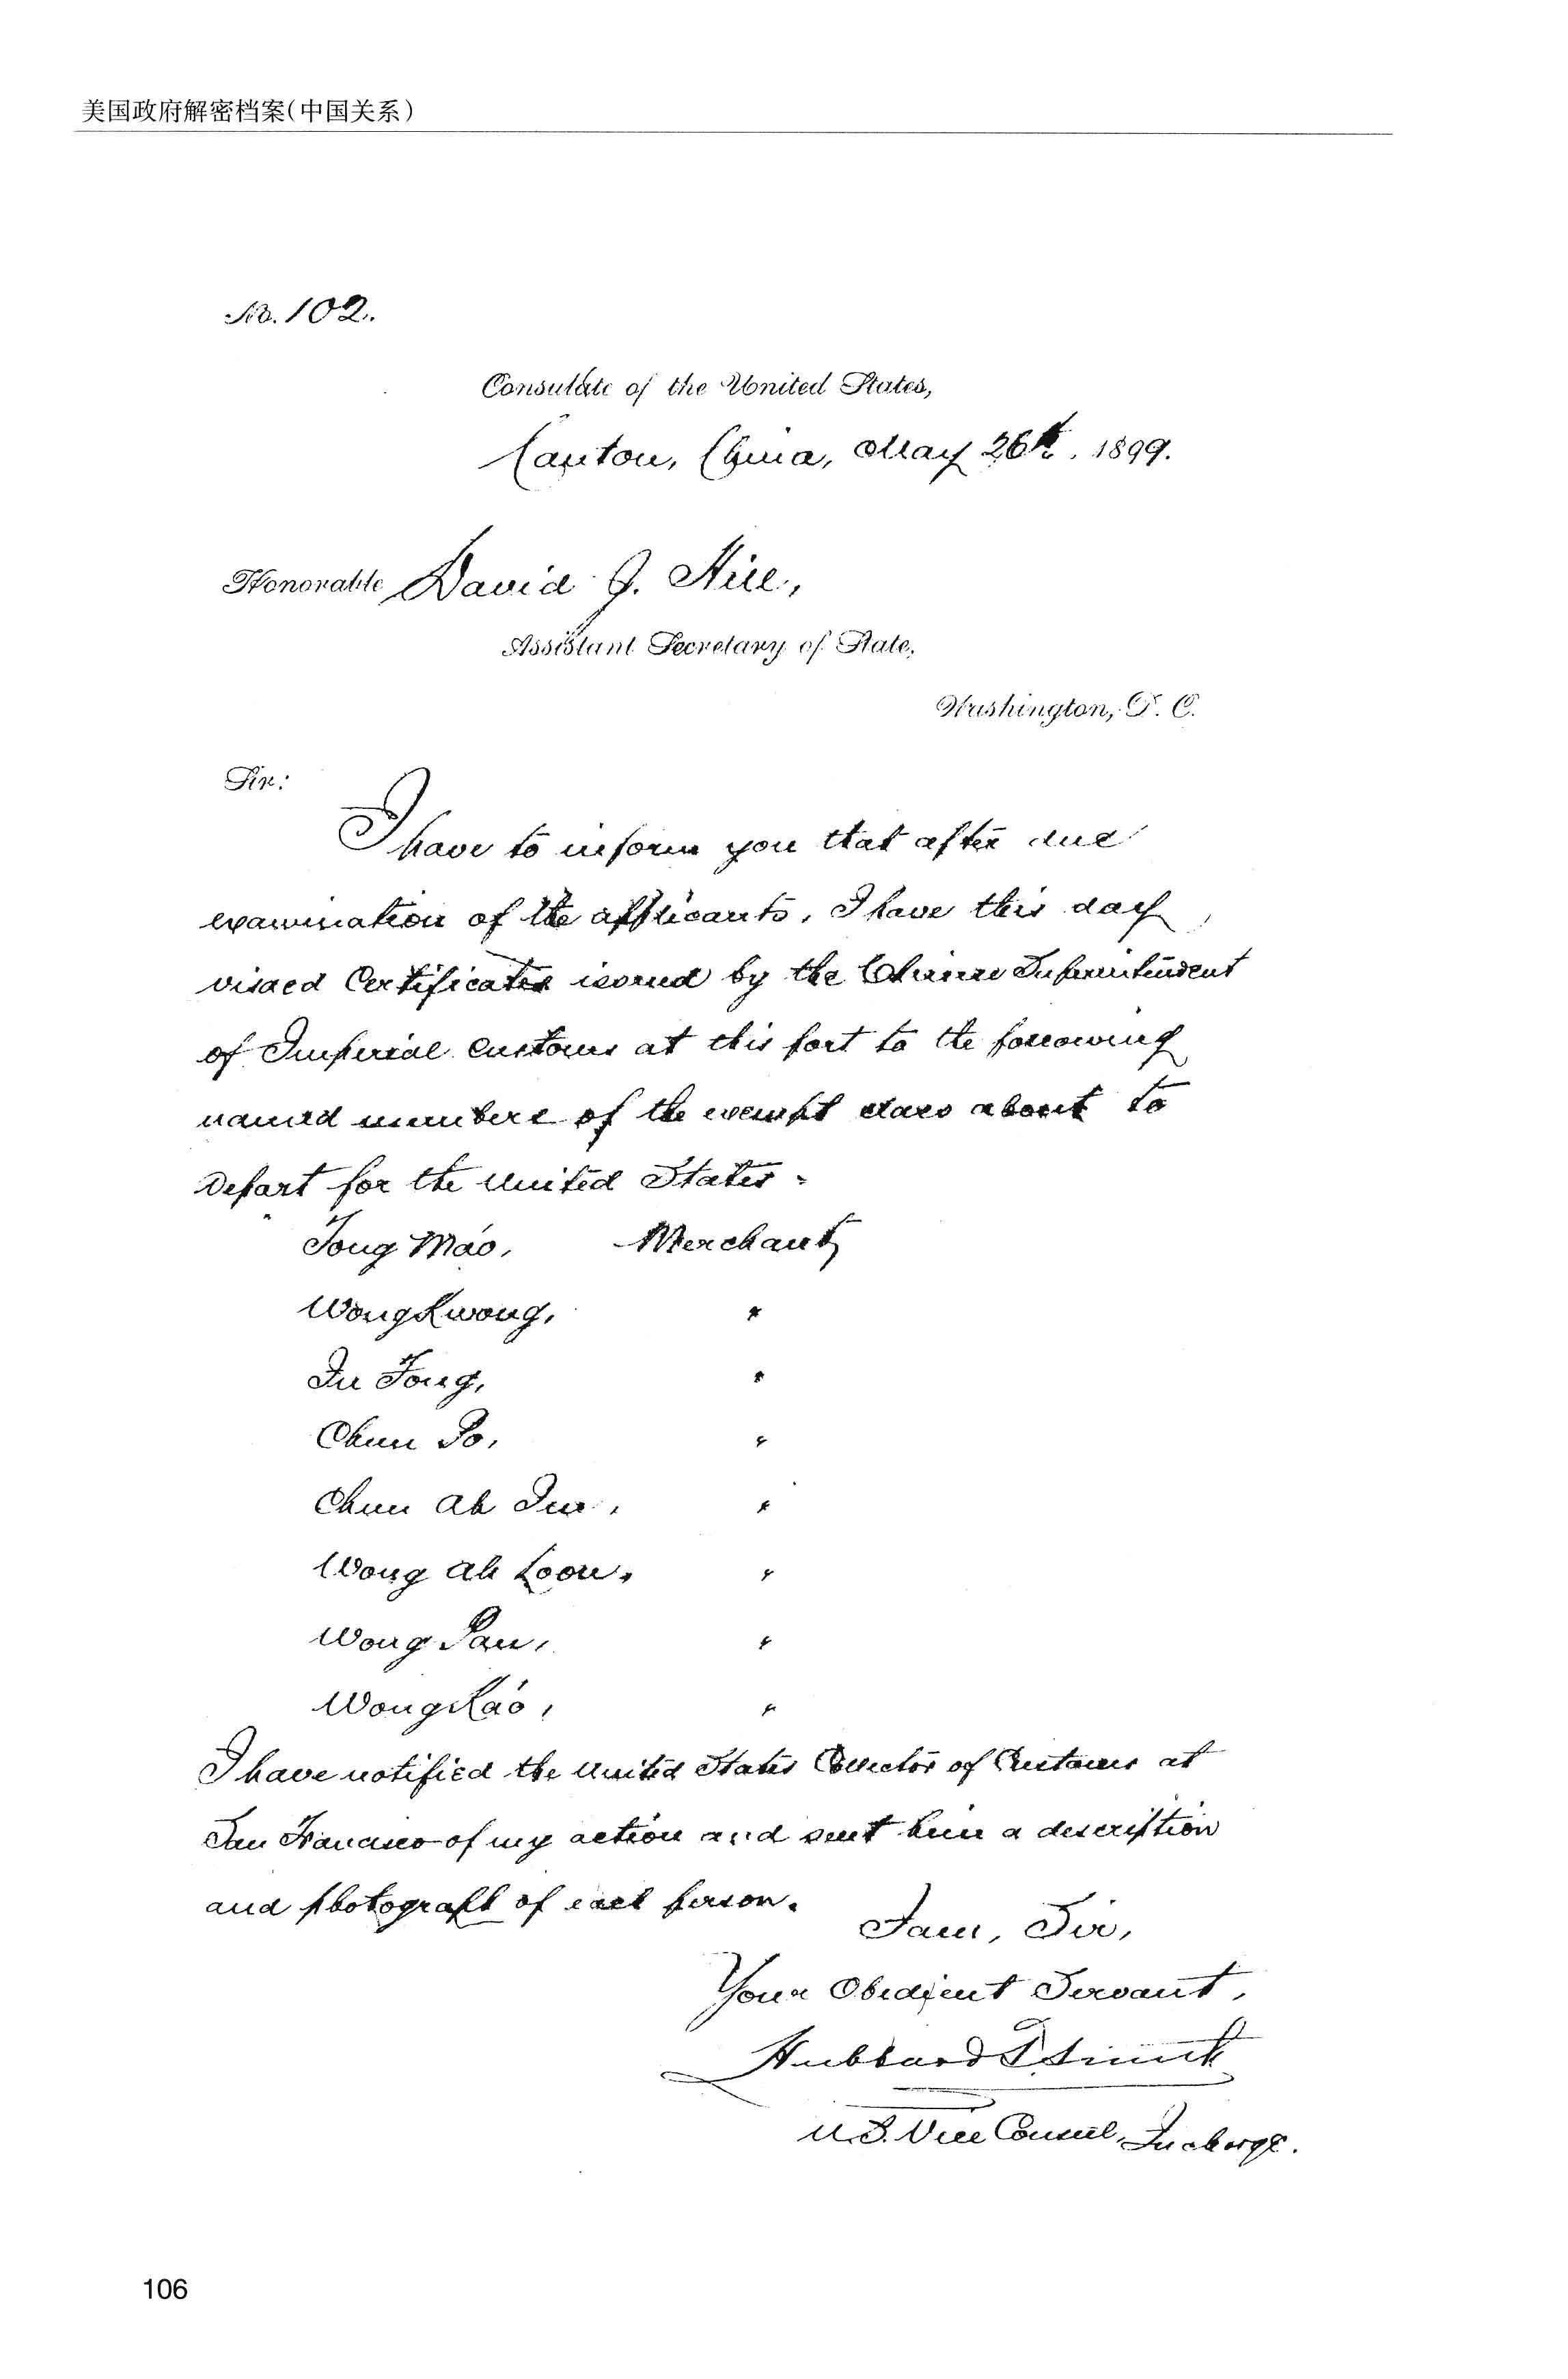 美国政府解密档案(中国关系)
No. 102.
Consulate of the United States,
Canton, China, May 26th. 1899.
Honorable David J. Hill,
Assistant Secretary of State,
Washington, D. C.
Sir:
I have to inform you that after due
examination of the applicants, I have this day
visaed Certificates issued by the Chinese Superintendent
of Imperial Customs at this port to the following
named members of the exempt class about to
Depart for the United States -
Tong Mao, Merchant
Wong Kwong, "
Fong, "
Chun Po, "
Chun Ah "
Wong Ah Loon, "
Wong Pan, "
Wong Kao, "
I have notified the United States Collector of Customs at
San Francisco of my action and sent him a description
and photograph of each person.
I am, Sir,
Your Obedient Servant,
Hubbard T. Smith
U.S. Vice Consul, In charge.
106